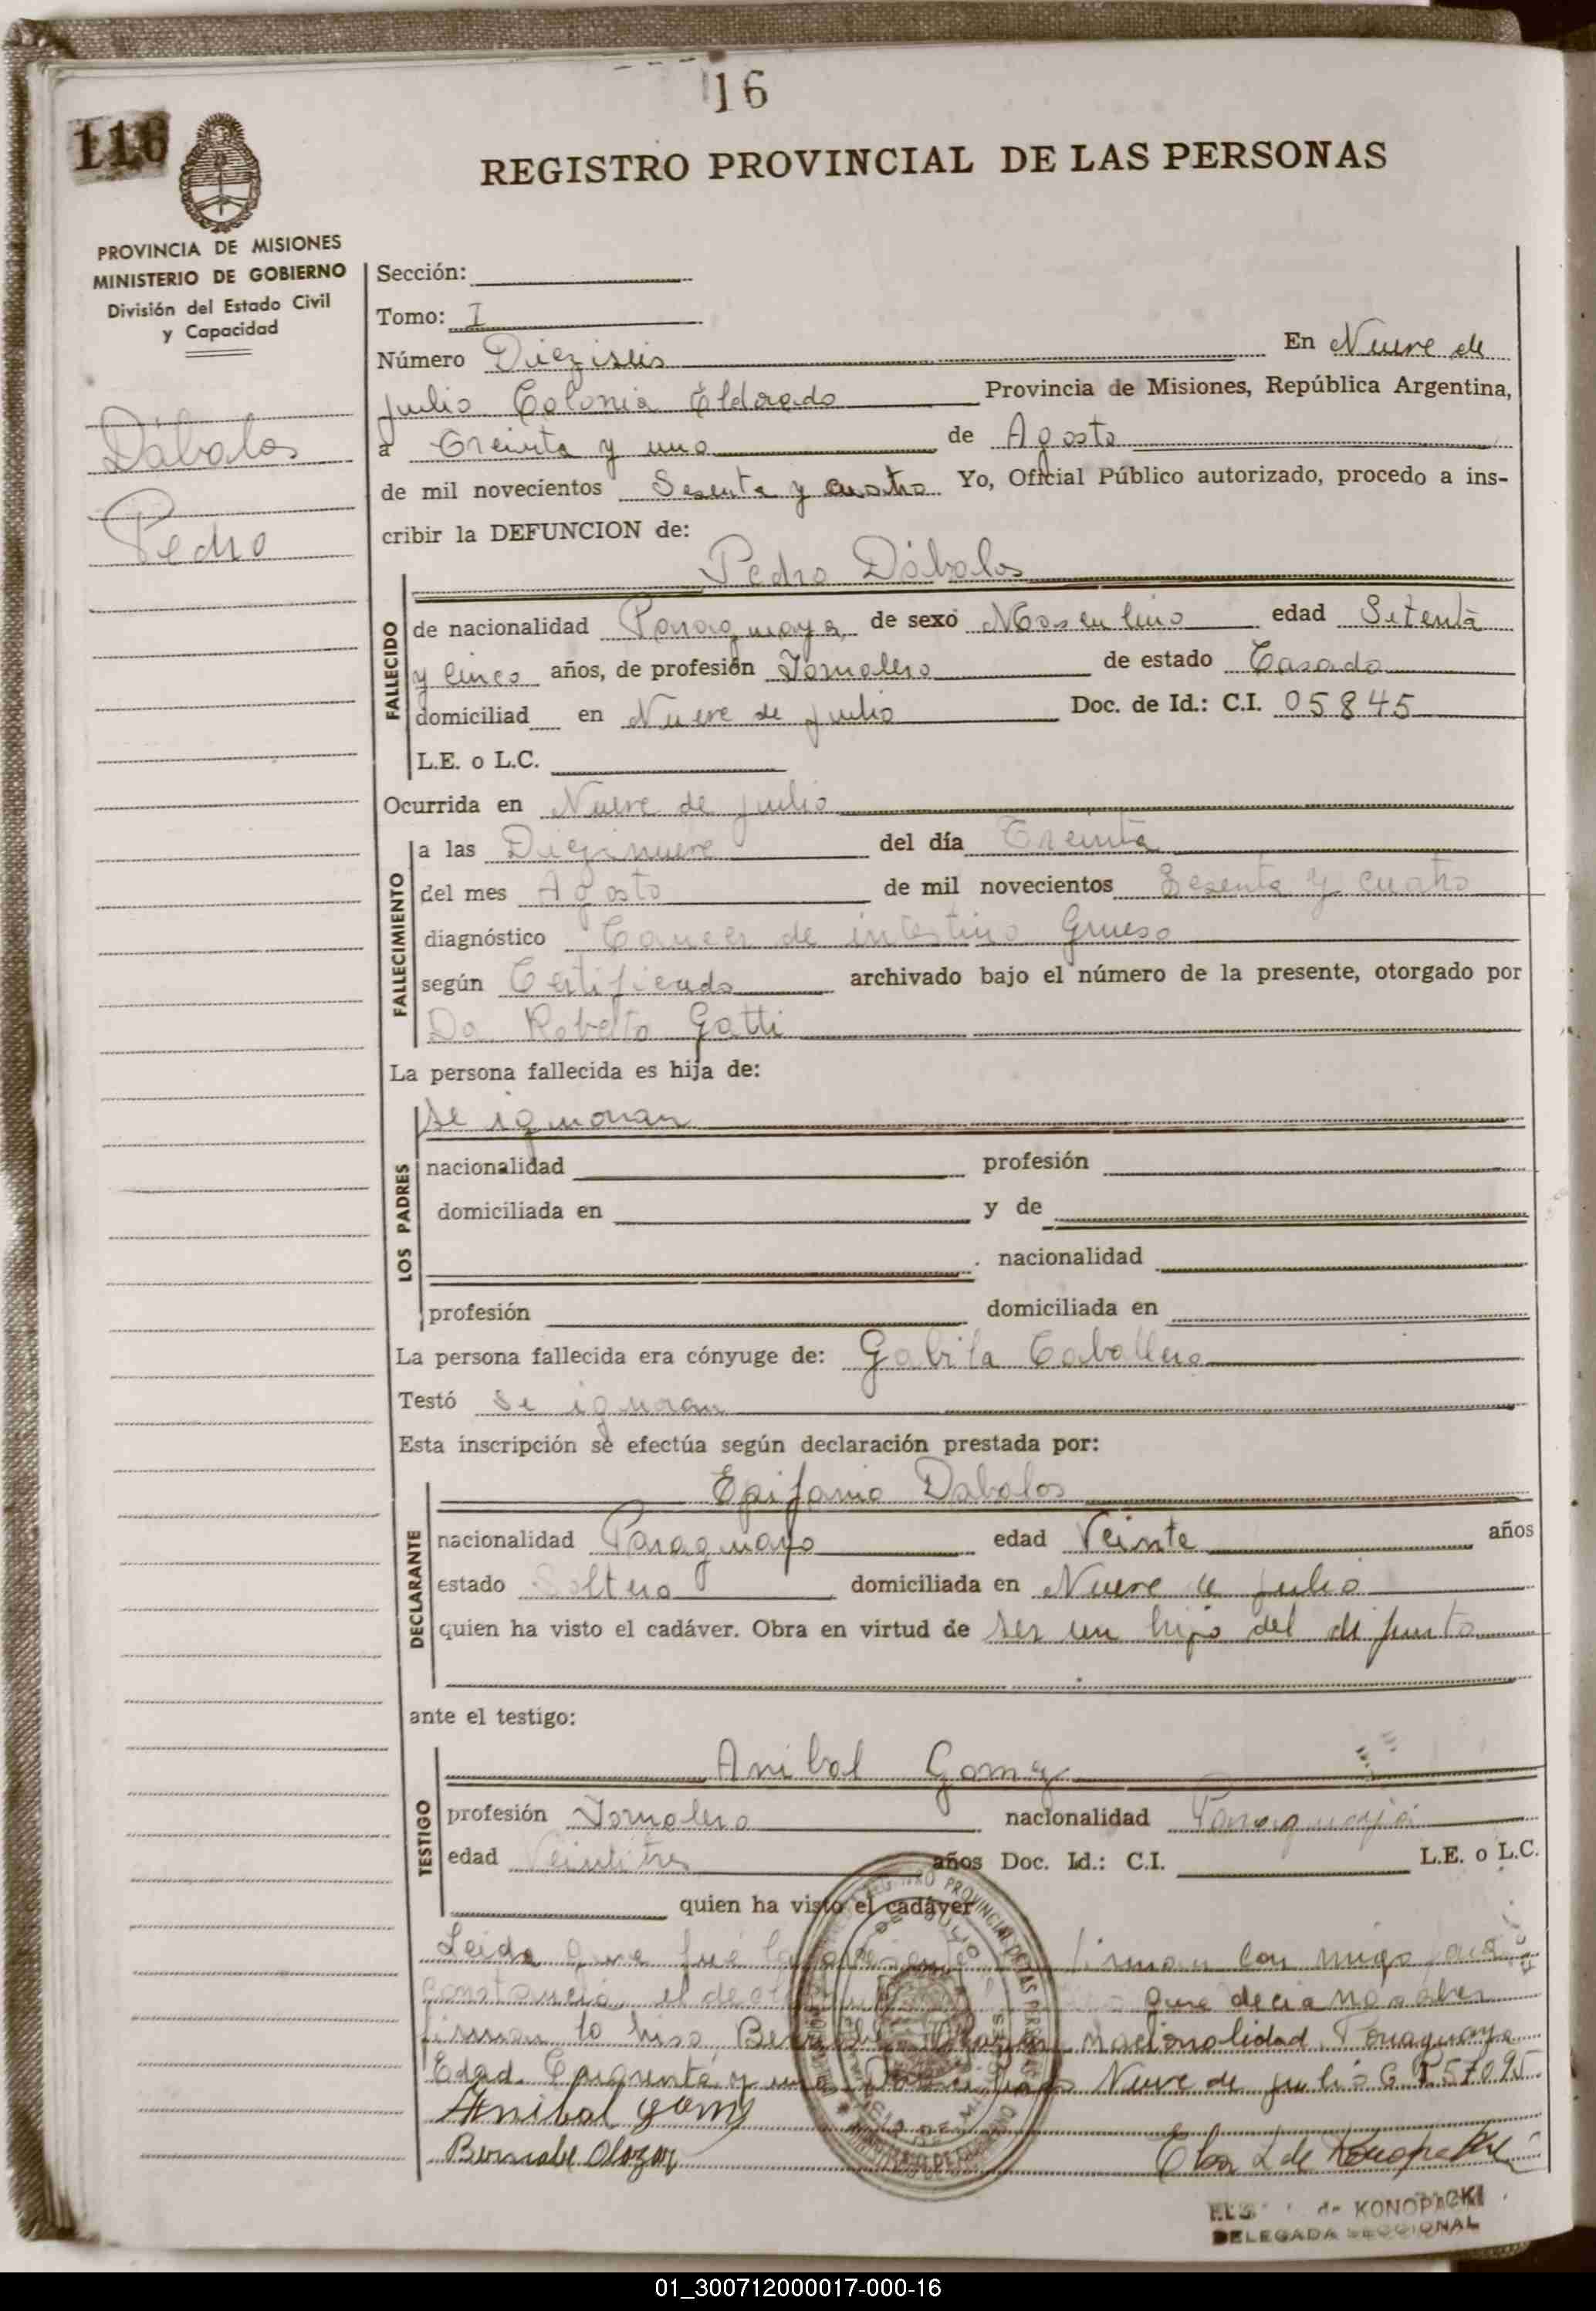 16
116
REGISTRO PROVINCIAL DE LAS PERSONAS
PROVINCIA DE MISIONES
MINISTERIO DE GOBIERNO
División del Estado Civil
y Capacidad
Dábalos
Pedro
Sección:
Tomo: I
Número Dieziseis En Nueve de
Julio Colonia Eldorado Provincia de Misiones, República Argentina,
a Treinta y uno de Agosto
de mil novecientos Sesenta y cuatro Yo, Oficial Público autorizado, procedo a ins-
cribir la DEFUNCION de:
Pedro Dábalos
FALLECIDO
de nacionalidad Paraguaya de sexo Masculino edad Setenta
y Cinco años, de profesión Jornalero de estado Casado
domiciliad en Nueve de Julio Doc. de Id.: C.I. 05845
L.E. o L.C.
Ocurrida en Nueve de Julio
FALLECIMIENTO
a las Diezinueve del día Treinta
del mes Agosto de mil novecientos Sesenta y cuatro
diagnóstico Cancer de intestino Grueso
según Certificado archivado bajo el número de la presente, otorgado por
Da Roberto Gatti
La persona fallecida es hija de:
LOS PADRES
se ignoran
nacionalidad profesión
domiciliada en y de
nacionalidad
profesión domiciliada en
La persona fallecida era cónyuge de: Gabila Caballero
Testó se ignoran
Esta inscripción se efectúa según declaración prestada por:
DECLARANTE
Epifanio Dabalos
nacionalidad Paraguayo edad Veinte años
estado Soltero domiciliada en Nueve de Julio
quien ha visto el cadáver. Obra en virtud de ser un hijo del difunto
ante el testigo:
TESTIGO
Anibal Gomez
profesión Jornalero nacionalidad Paraguaya
edad Veintitres años Doc. Id.: C.I. L.E. o L.C.
quien ha visto el cadáver
Leida que fué la presente firman con migo para
constancia, el que decia no saber
firmar lo hiso Bernabe Olazar nacionalidad Paraguaya
Edad Cuarenta y uno Nueve de Julio C P.57095
Anibal Gomez
Bernabe Olazar Elsa L de Konopacki
de KONOPACKI
DELEGADA SECCIONAL
01_300712000017-000-16